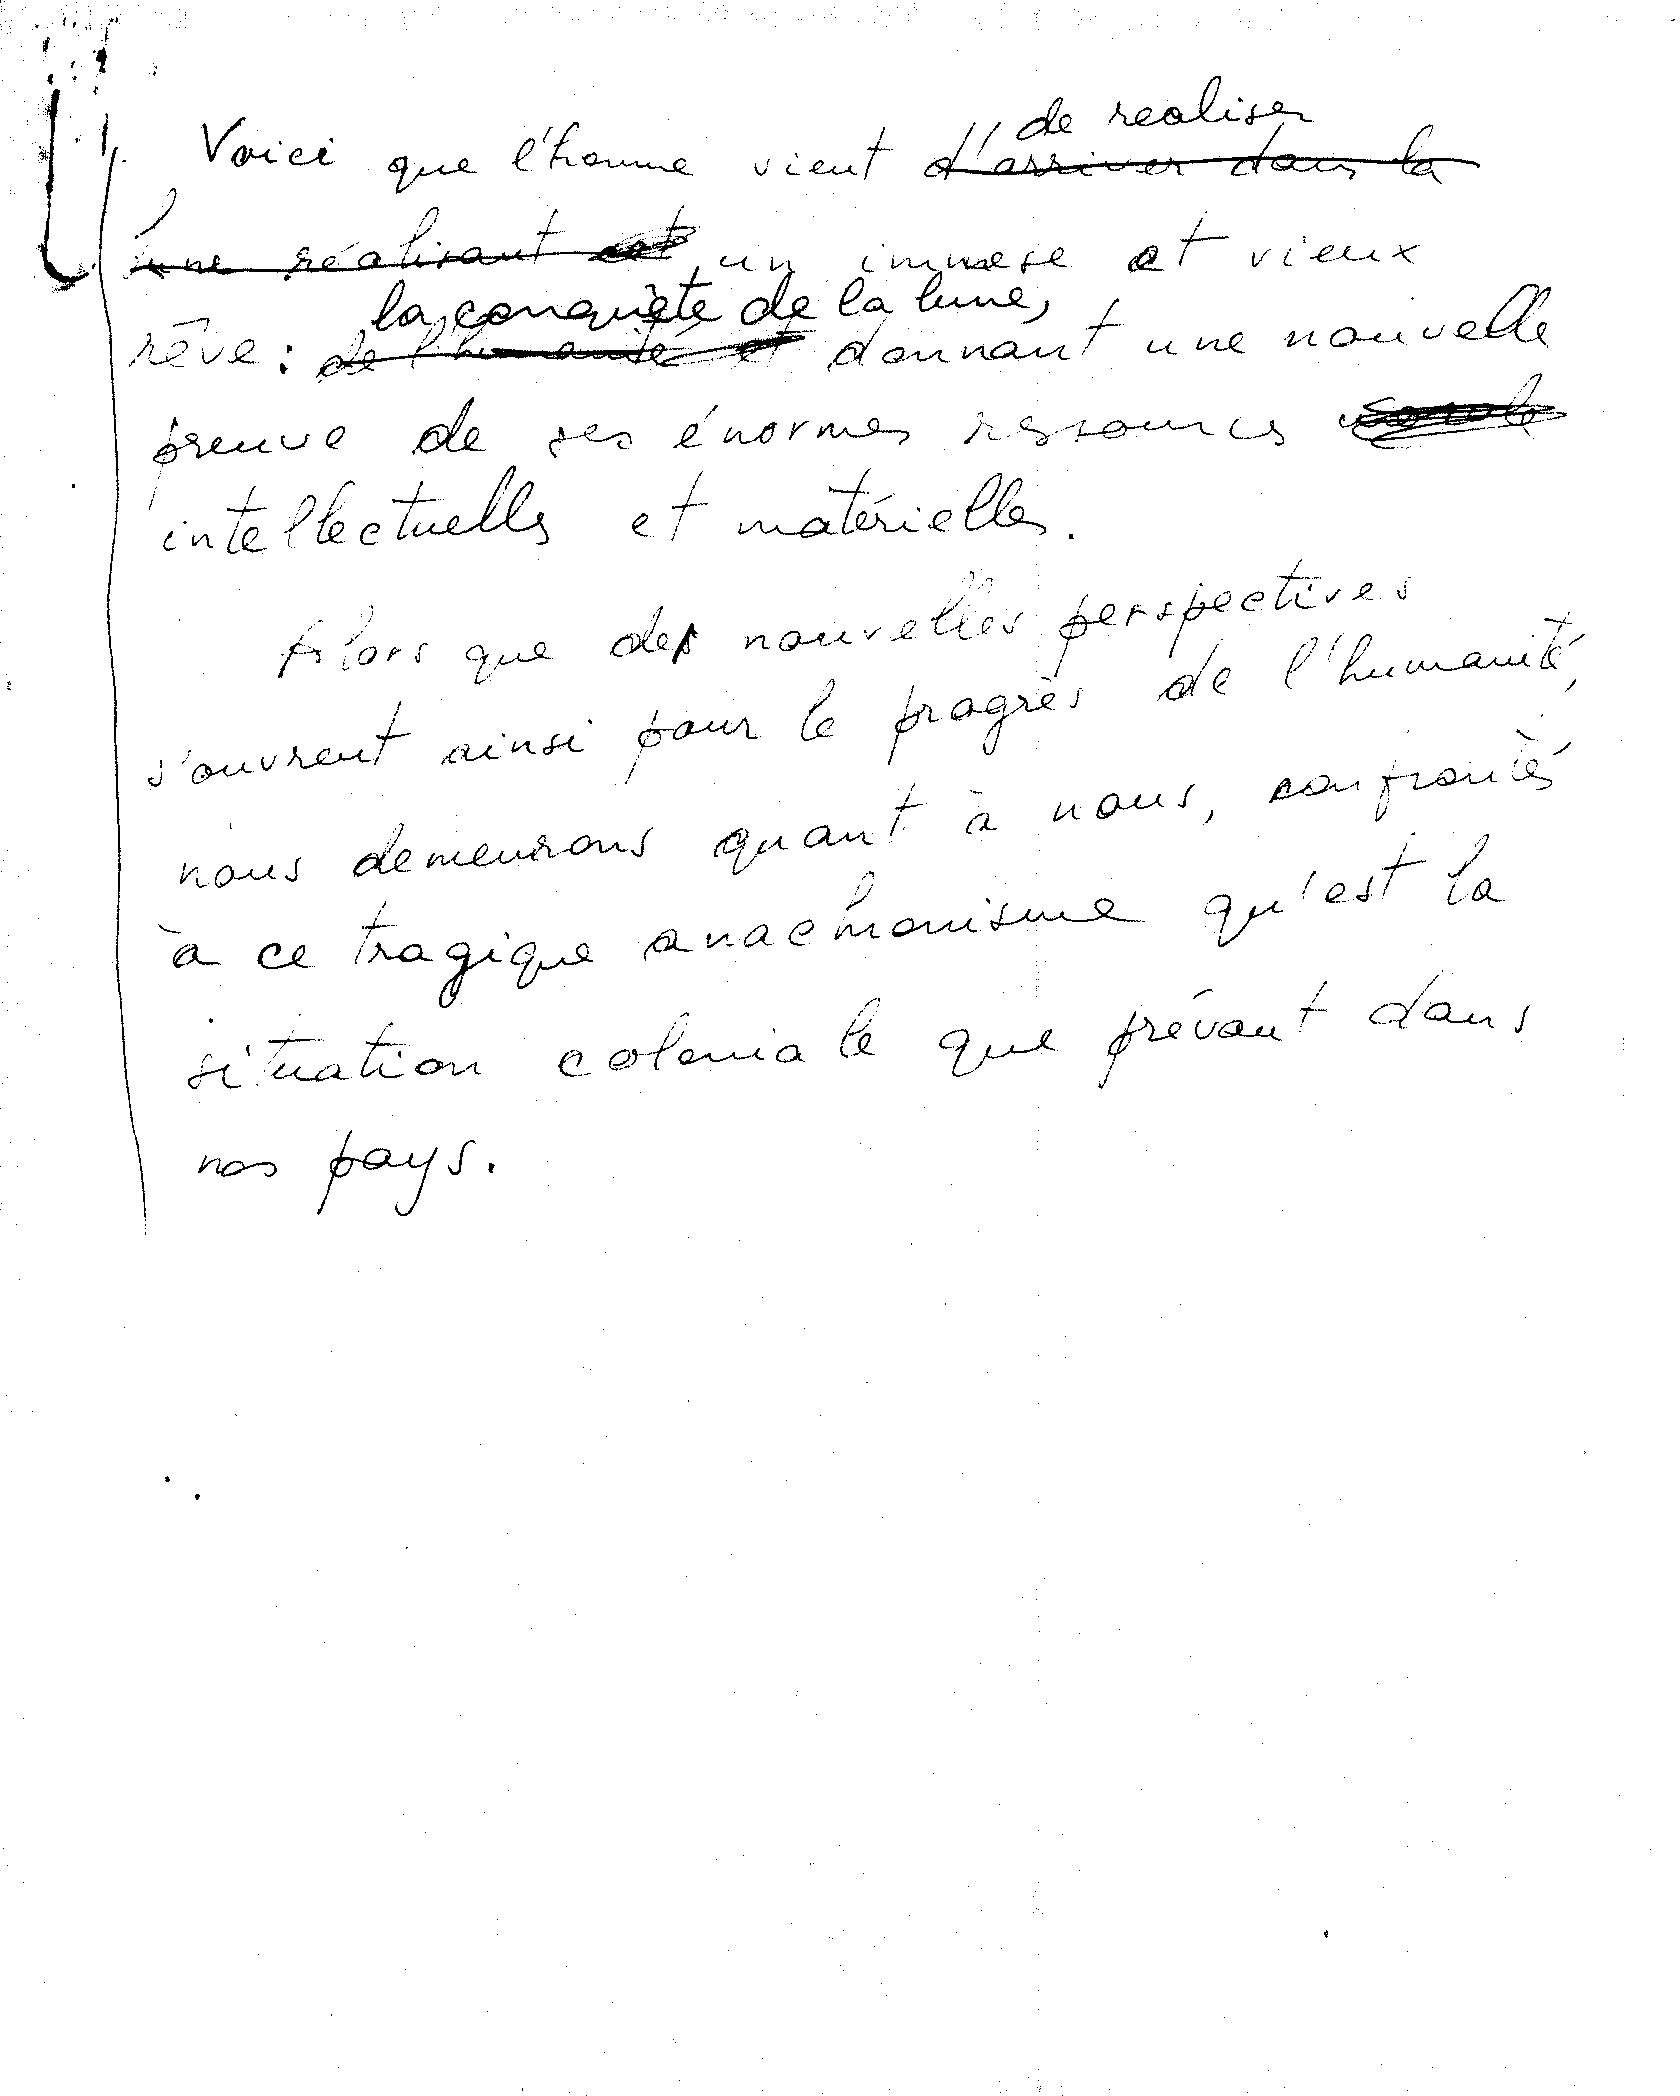 de realiser
Voici que l'homme vient d'arriver dans la
lune réalisant cet un immese et vieux
la conquête de la lune,
rêve: de l'humanité et donnant une nouvelle
preuve de ses énormes ressources
intellectuelles et matérielles.
Alors que des nouvelles perspectives
s'ouvrent ainsi pour le progrès de l'humanité,
nous demeurons quant à nous, confrontés
à ce tragique anachronisme qu'est la
situation coloniale que prévaut dans
nos pays.